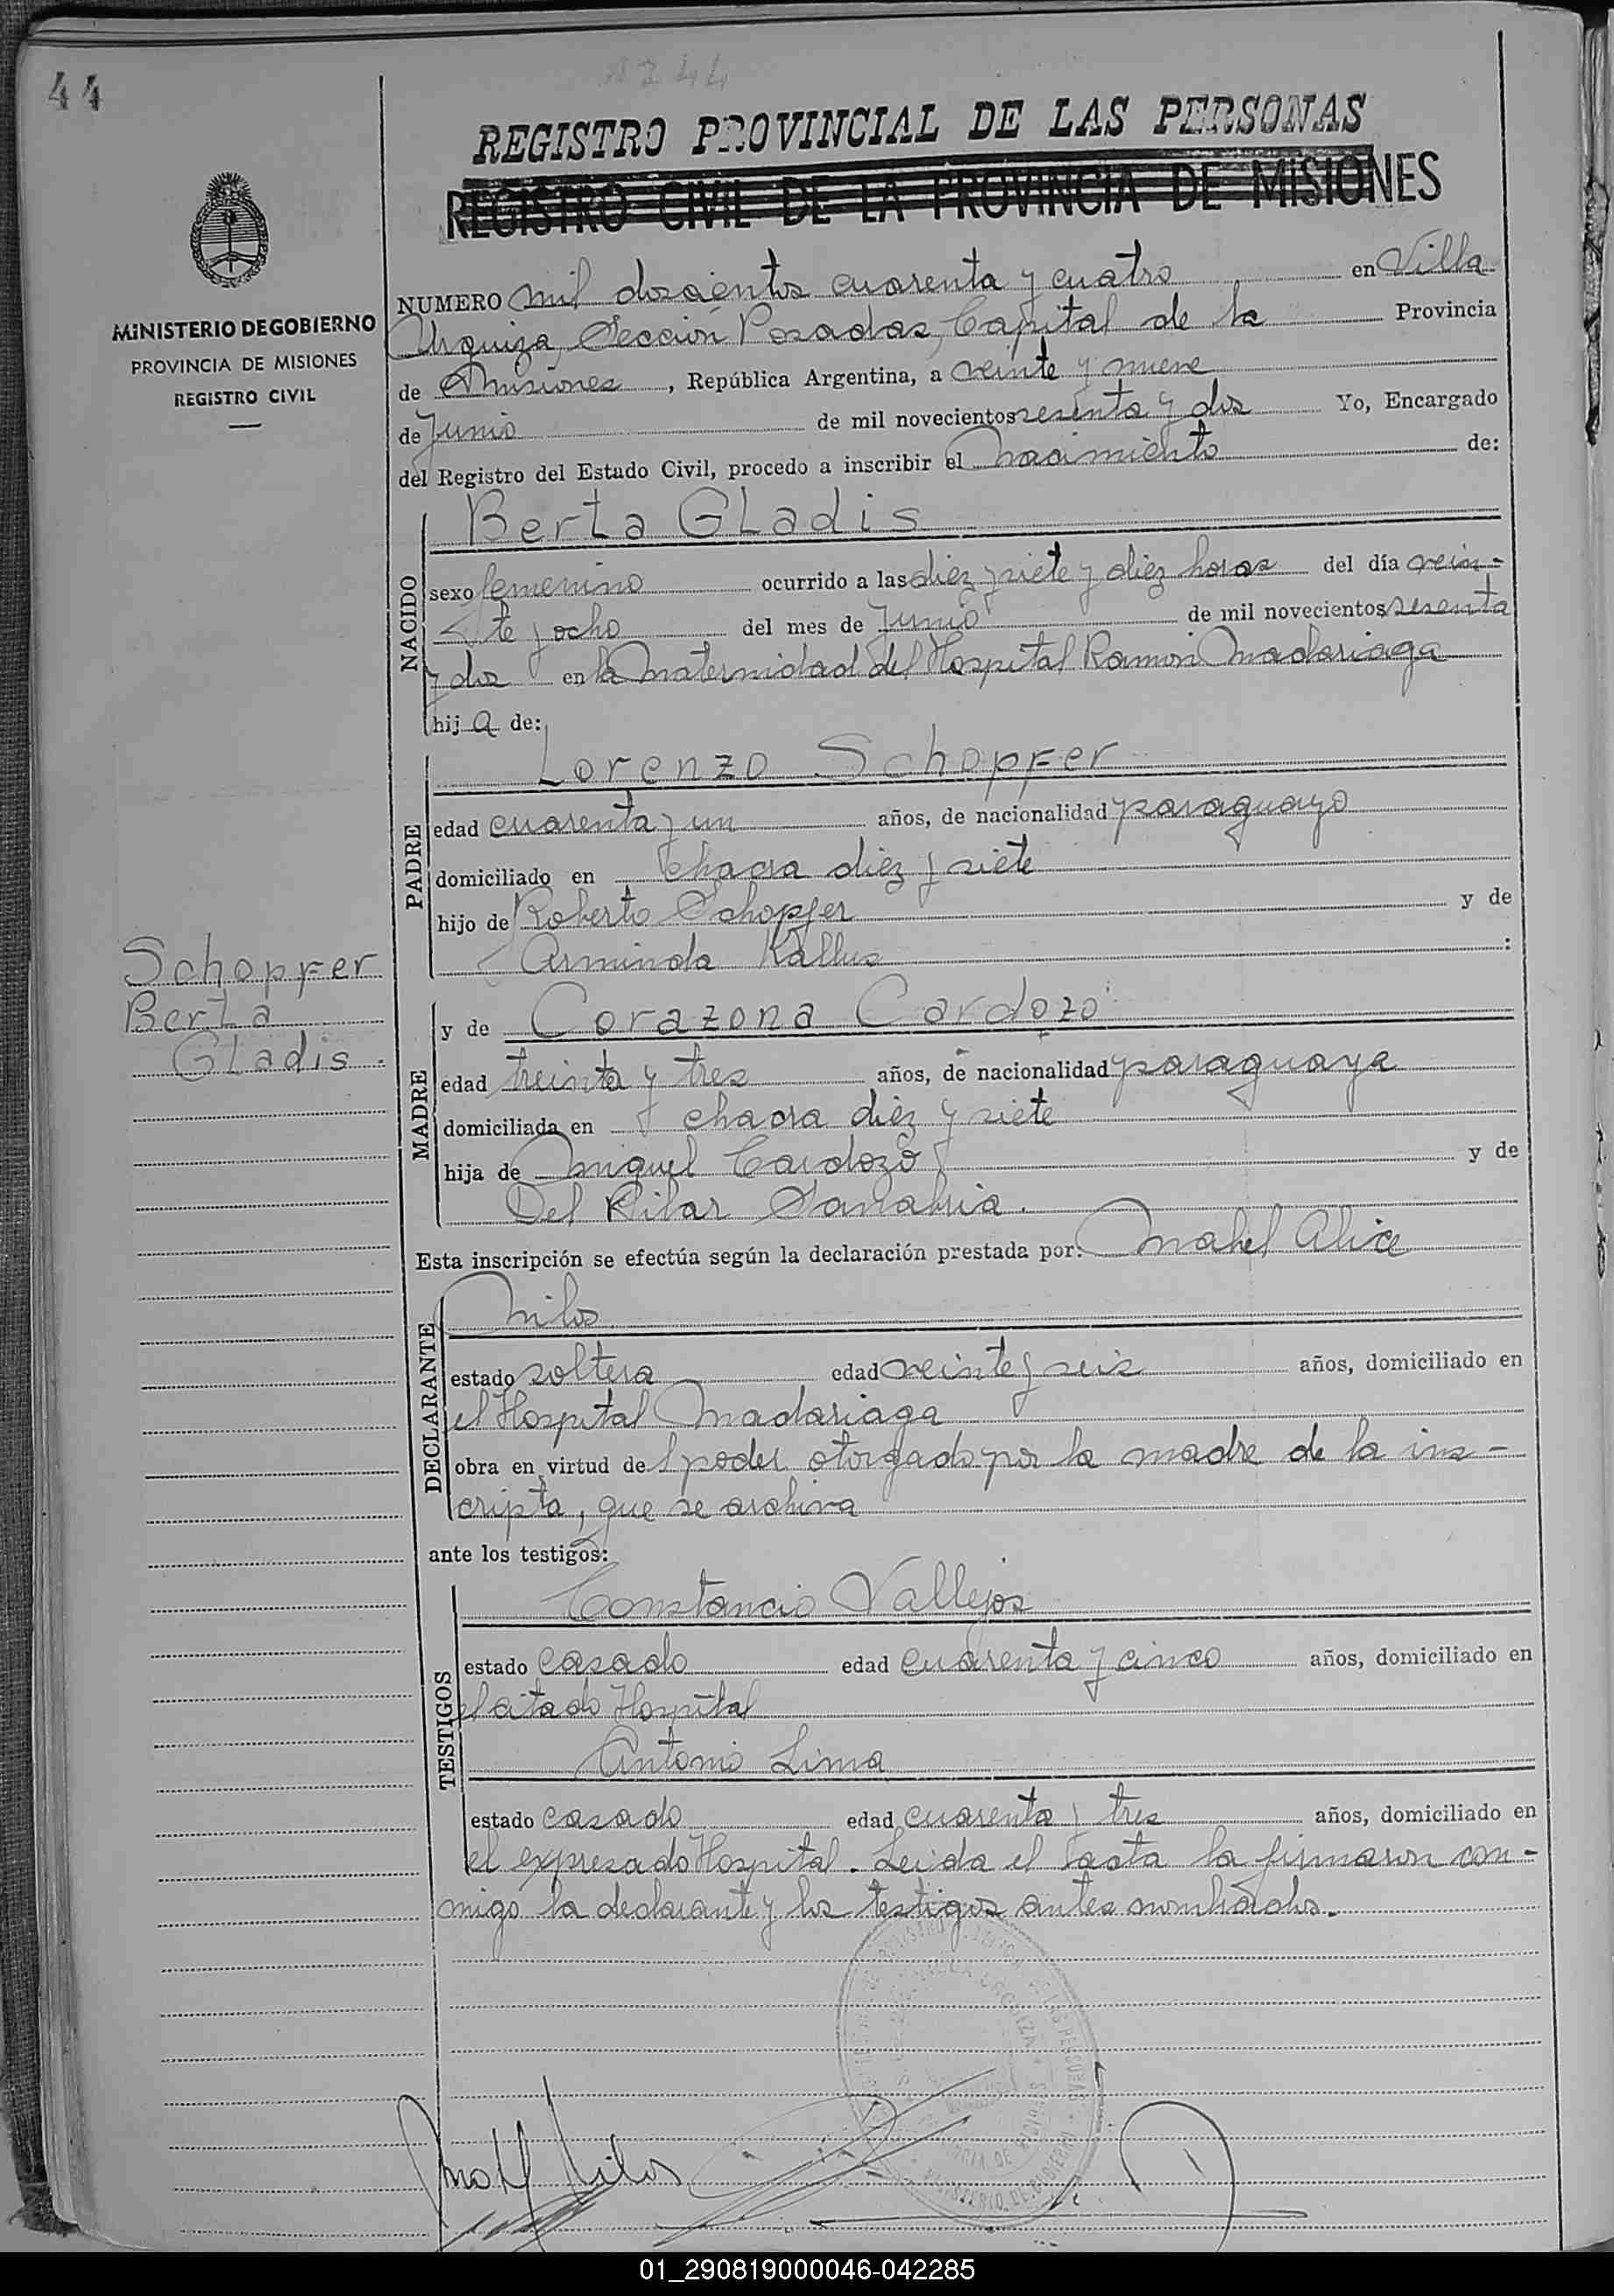 44
REGISTRO PROVINCIAL DE LAS PERSONAS
REGISTRO CIVIL DE LA PROVINCIA DE MISIONES
MINISTERIO DE GOBIERNO
PROVINCIA DE MISIONES
REGISTRO CIVIL
NUMERO mil doscientos cuarenta y cuatro en Villa
Urquiza, Sección Posadas, Capital de la Provincia
de Misiones, República Argentina, a veinte y nueve
de Junio de mil novecientos sesenta y dos Yo, Encargado
del Registro del Estado Civil, procedo a inscribir el nacimiento de:
NACIDO
Berta GLadis
sexo femenino ocurrido a las diez y siete y diez horas del día vein-
te y ocho del mes de Junio de mil novecientos sesenta
y dos en la Maternidad del Hospital Ramon Madariaga
hija de:
PADRE
Lorenzo Schopfer
edad cuarenta y un años, de nacionalidad paraguayo
domiciliado en Chacra diez y siete
hijo de Roberto Schopfer y de
Arminda Kallus :
Schopfer
Berta
GLadis.
MADRE
y de Corazona Cardozo
edad treinta y tres años, de nacionalidad paraguaya
domiciliada en chacra diez y siete
hija de Miguel Cardozo y de
Del Pilar Sanabria.
Esta inscripción se efectúa según la declaración prestada por: Mabel Alice
DECLARANTE
Milos
estado soltera edad veinte y seis años, domiciliado en
el Hospital Madariaga
obra en virtud del poder otorgado por la madre de la ins-
cripta, que se archiva
ante los testigos:
TESTIGOS
Constancio Vallejos
estado casado edad cuarenta y cinco años, domiciliado en
el citado Hospital
Antonio Lima
estado casado edad cuarenta y tres años, domiciliado en
el expresado Hospital. Leida el acta la firmaron con-
migo la declarante y los testigos antes nombrados.
01_290819000046-042285